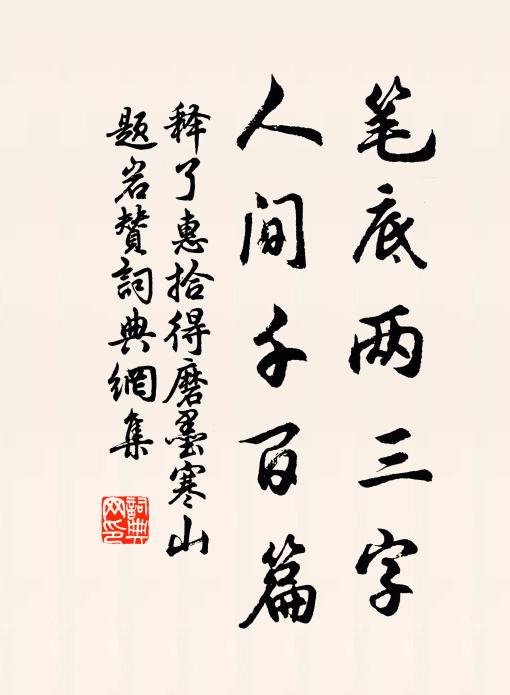 笔底两三字
人间千百篇
释了惠拾得磨墨寒山
题岩赞詞典網集
詞典网印